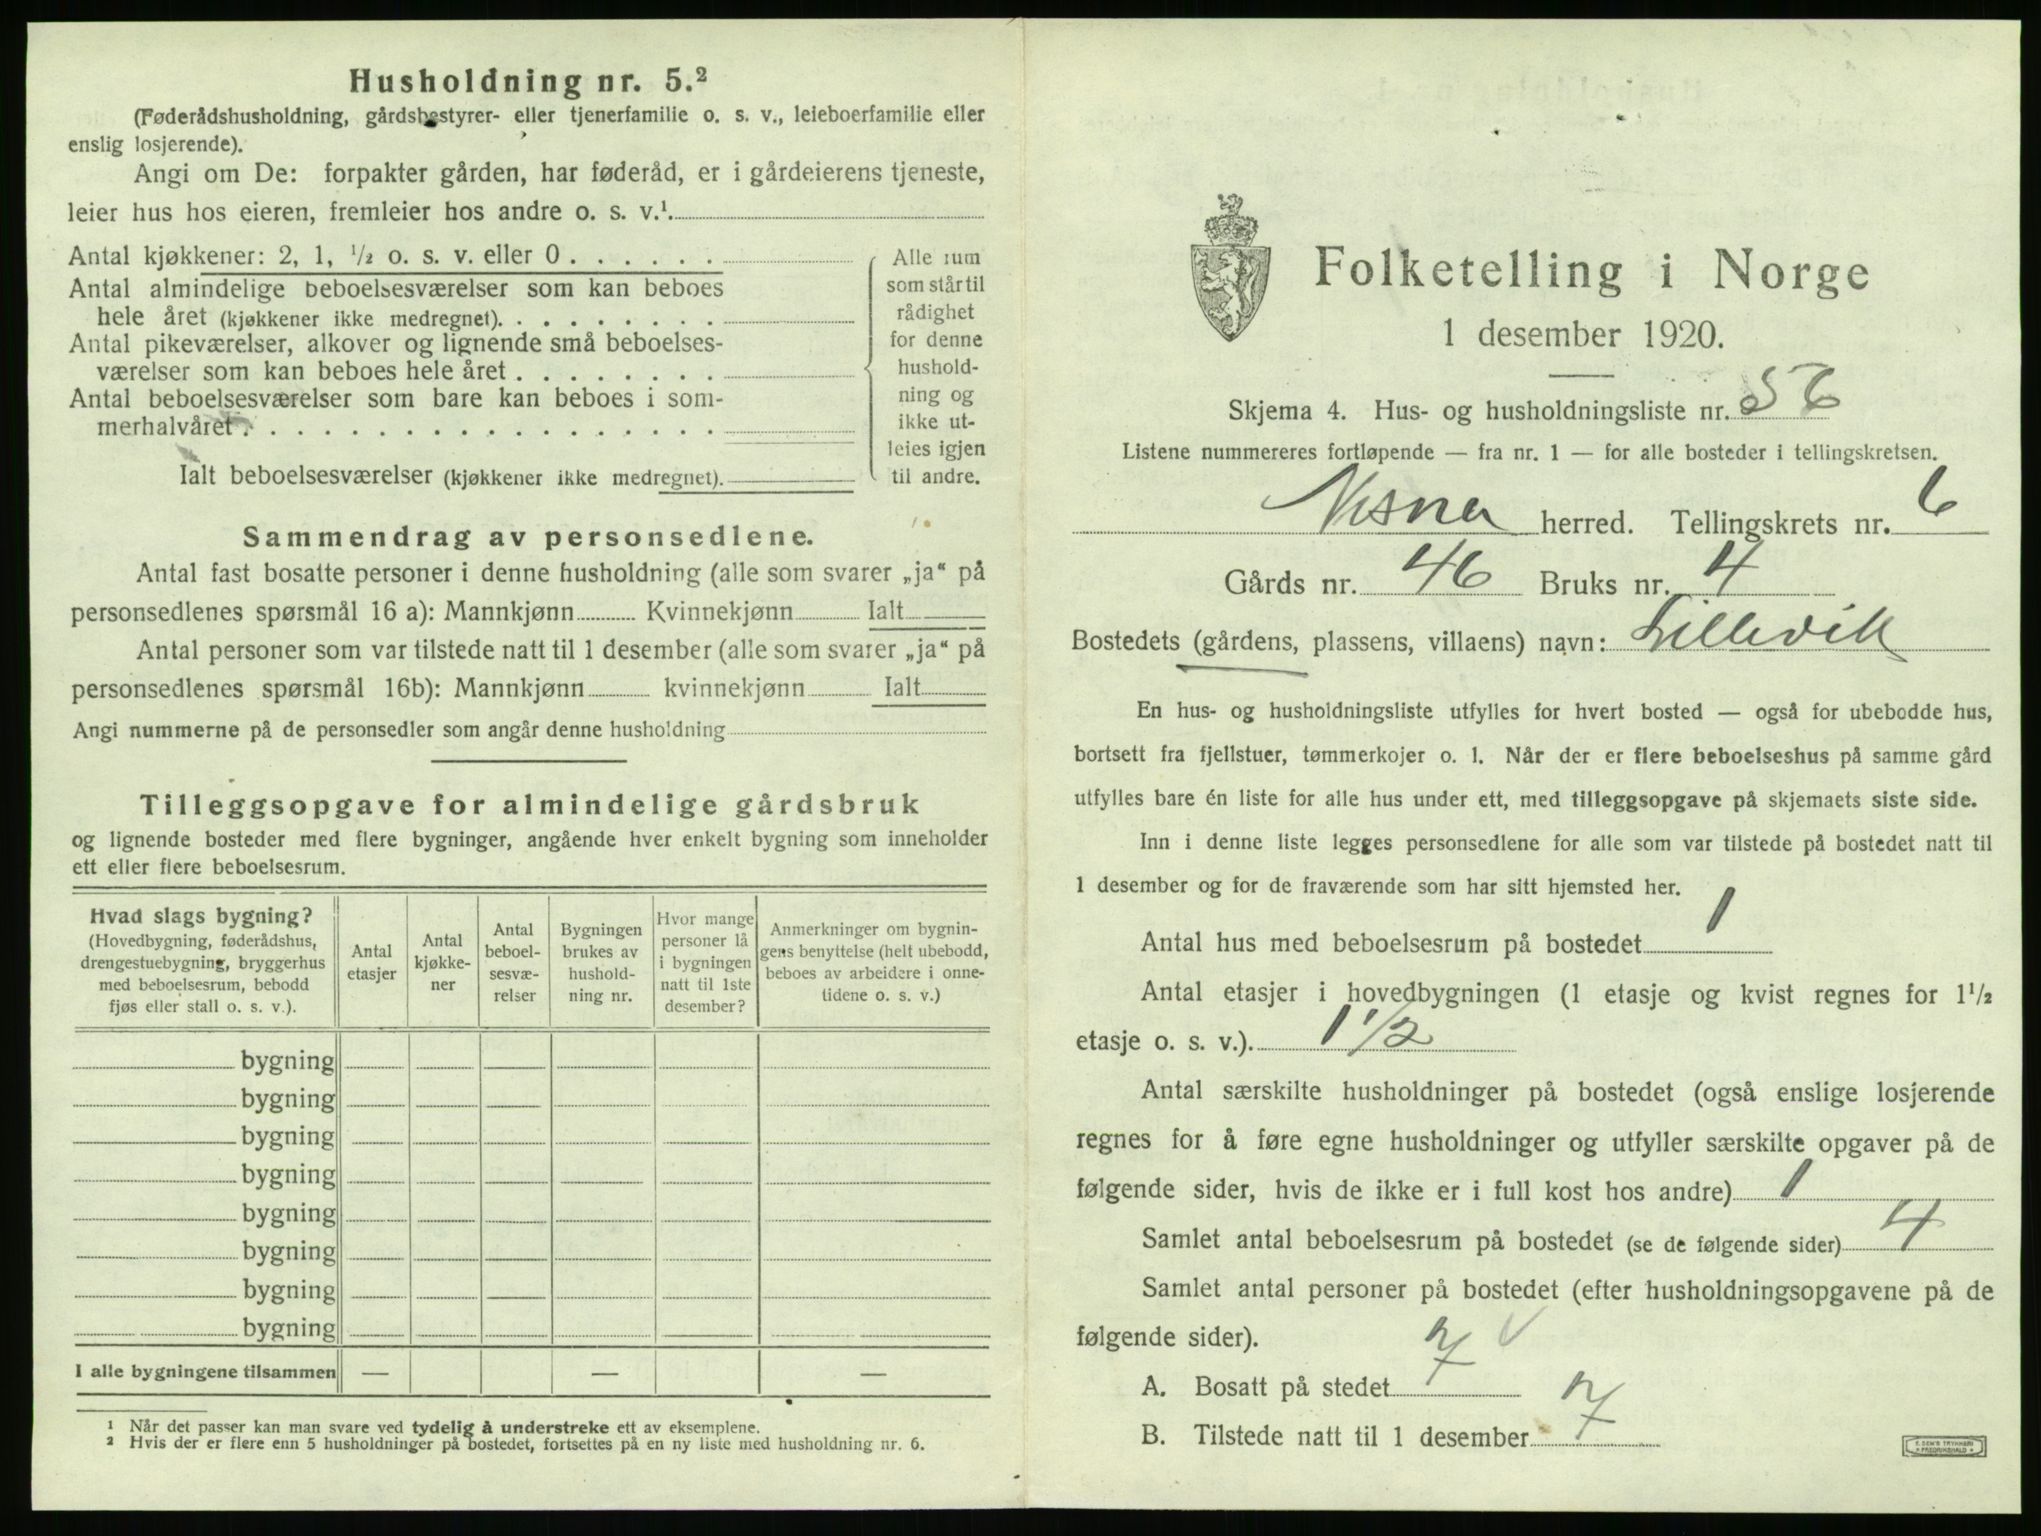 Husholdning nr. 5.²
(Føderådshusholdning, gårdsbestyrer- eller tjenerfamilie o. s. v., leieboerfamilie eller
enslig losjerende).
Angi om De: forpakter gården, har føderåd, er i gårdeierens tjeneste,
leier hus hos eieren, fremleier hos andre o. s. v.¹.
Antal kjøkkener: 2, 1, ½ o. s. v. eller 0
Antal almindelige beboelsesværelser som kan beboes
hele året (kjøkkener ikke medregnet).
Antal pikeværelser, alkover og lignende små beboelses-
værelser som kan beboes hele året
Antal beboelsesværelser som bare kan beboes i som-
merhalvåret
Ialt beboelsesværelser (kjøkkener ikke medregnet).
Alle rum
som står til
rådighet
for denne
hushold-
ning og
ikke ut-
leies igjen
til andre.
Sammendrag av personsedlene.
Antal fast bosatte personer i denne husholdning (alle som svarer „ja“ på
personsedlenes spørsmål 16 a): Mannkjønn Kvinnekjønn Ialt
Antal personer som var tilstede natt til 1 desember (alle som svarer „ja“ på
personsedlenes spørsmål 16b): Mannkjønn kvinnekjønn Ialt
Angi nummerne på de personsedler som angår denne husholdning
Tilleggsopgave for almindelige gårdsbruk
og lignende bosteder med flere bygninger, angående hver enkelt bygning som inneholder
ett eller flere beboelsesrum.
Hvad slags bygning?
(Hovedbygning, føderådshus,
drengestuebygning, bryggerhus
med beboelsesrum, bebodd
fjøs eller stall o. s. v.).
Antal
etasjer
Antal
kjøkke-
ner
Antal
beboel-
sesvæ-
relser
Bygningen
brukes av
hushold-
ning nr.
Hvor mange
personer lå
i bygningen
natt til 1ste
desember?
Anmerkninger om bygnin-
gens benyttelse (helt ubebodd,
beboes av arbeidere i onne-
tidene o. s. v.)
bygning
bygning
bygning
bygning
bygning
bygning
bygning
bygning
I alle bygningene tilsammen — — —
¹ Når det passer kan man svare ved tydelig å understreke ett av eksemplene.
² Hvis der er flere enn 5 husholdninger på bostedet, fortsettes på en ny liste med husholdning nr. 6.
Folketelling i Norge
1 desember 1920.
Skjema 4. Hus- og husholdningsliste nr. 56
Listene nummereres fortløpende — fra nr. 1 — for alle bosteder i tellingskretsen.
Vesnes herred. Tellingskrets nr. 6
Gårds nr. 46 Bruks nr. 4
Bostedets (gårdens, plassens, villaens) navn: Lillevik
En hus- og husholdningsliste utfylles for hvert bosted — også for ubebodde hus,
bortsett fra fjellstuer, tømmerkojer o. l. Når der er flere beboelseshus på samme gård
utfylles bare én liste for alle hus under ett, med tilleggsopgave på skjemaets siste side.
Inn i denne liste legges personsedlene for alle som var tilstede på bostedet natt til
1 desember og for de fraværende som har sitt hjemsted her.
Antal hus med beboelsesrum på bostedet 1
Antal etasjer i hovedbygningen (1 etasje og kvist regnes for 1½
etasje o. s. v.). 1 1/2
Antal særskilte husholdninger på bostedet (også enslige losjerende
regnes for å føre egne husholdninger og utfyller særskilte opgaver på de
følgende sider, hvis de ikke er i full kost hos andre) 1
Samlet antal beboelsesrum på bostedet (se de følgende sider) 4
Samlet antal personer på bostedet (efter husholdningsopgavene på de
følgende sider).
A. Bosatt på stedet 7 ✓
B. Tilstede natt til 1 desember 7